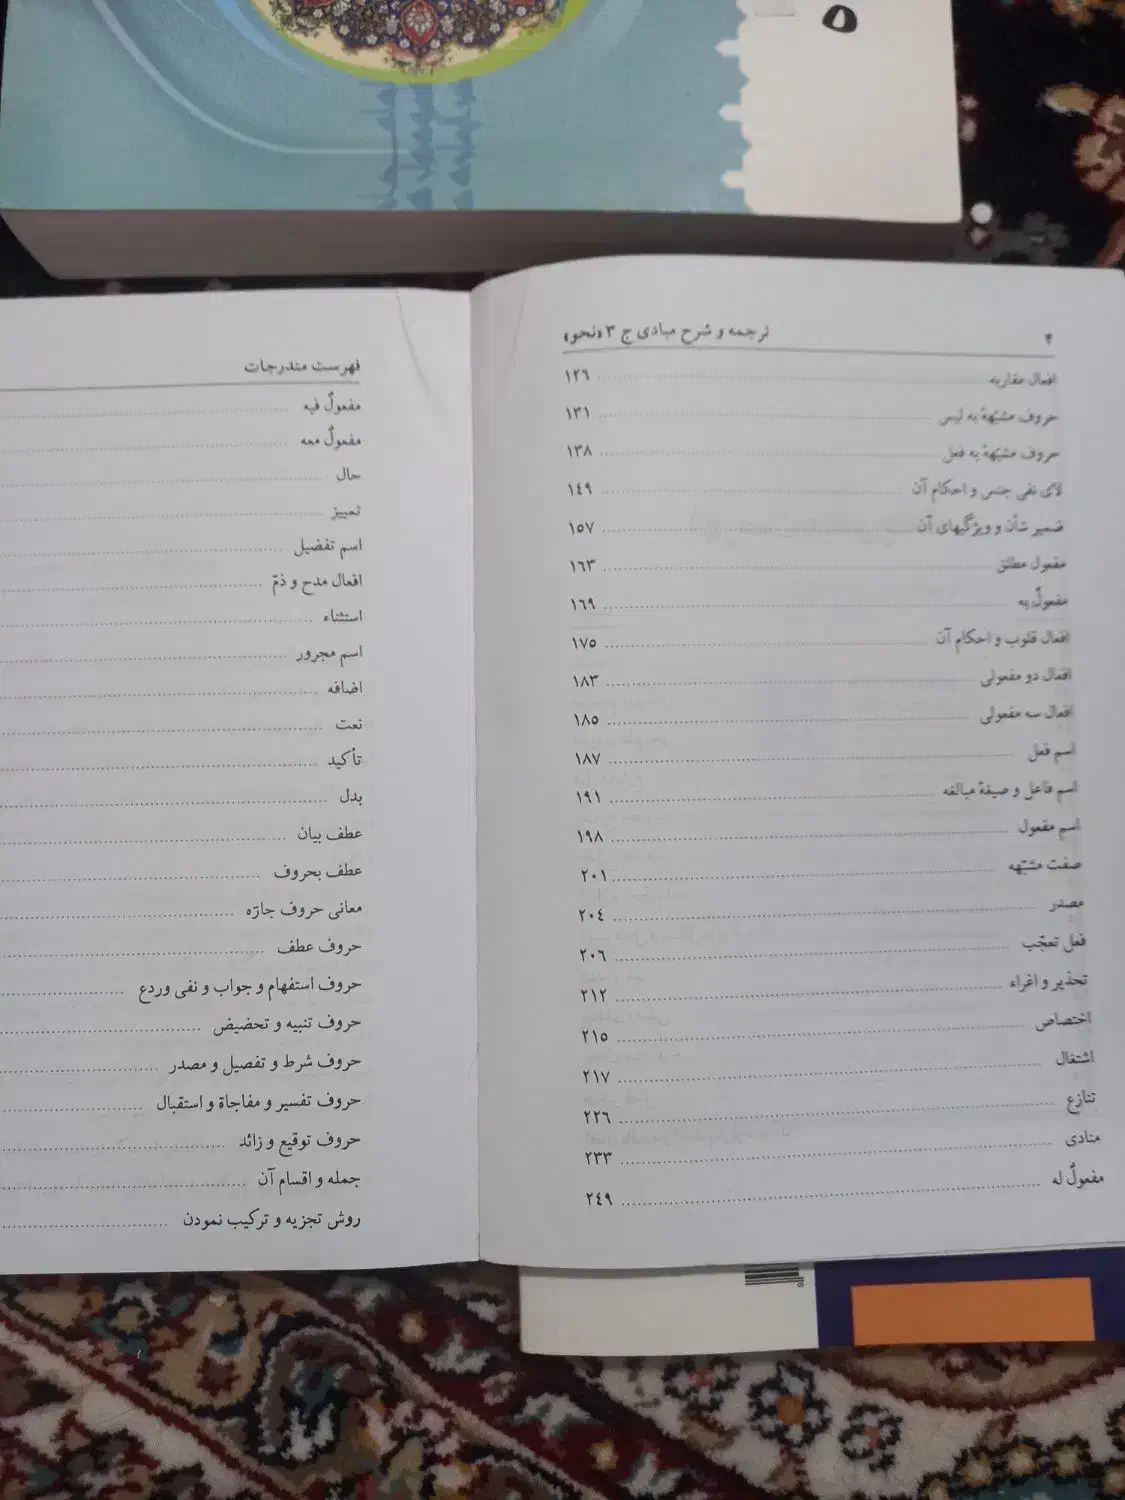 ۵
۴ ترجمه و شرح مبادی ج ۳ «نحو»
افعال مقاربه ۱۲۶
حروف مشبّهة به لیس ۱۳۱
حروف مشبّهة به فعل ۱۳۸
لای نفی جنس و احکام آن ۱٤۹
ضمیر شأن و ویژگیهای آن ۱۵۷
مفعول مطلق ۱۶۳
مفعولٌ به ۱۶۹
افعال قلوب و احکام آن ۱۷۵
افعال دو مفعولی ۱۸۳
افعال سه مفعولی ۱۸۵
اسم فعل ۱۸۷
اسم فاعل و صیغهٔ مبالغه ۱۹۱
اسم مفعول ۱۹۸
صفت مشبّهه ۲۰۱
مصدر ۲۰٤
فعل تعجّب ۲۰۶
تحذیر و اغراء ۲۱۲
اختصاص ۲۱۵
اشتغال ۲۱۷
تنازع ۲۲۶
منادی ۲۳۳
مفعولٌ له ۲٤۹
فهرست مندرجات
مفعولٌ فیه
مفعولٌ معه
حال
تمییز
اسم تفضیل
افعال مدح و ذمّ
استثناء
اسم مجرور
اضافه
نعت
تأکید
بدل
عطف بیان
عطف بحروف
معانی حروف جارّه
حروف عطف
حروف استفهام و جواب و نفی وردع
حروف تنبیه و تحضیض
حروف شرط و تفصیل و مصدر
حروف تفسیر و مفاجاة و استقبال
حروف توقیع و زائد
جمله و اقسام آن
روش تجزیه و ترکیب نمودن